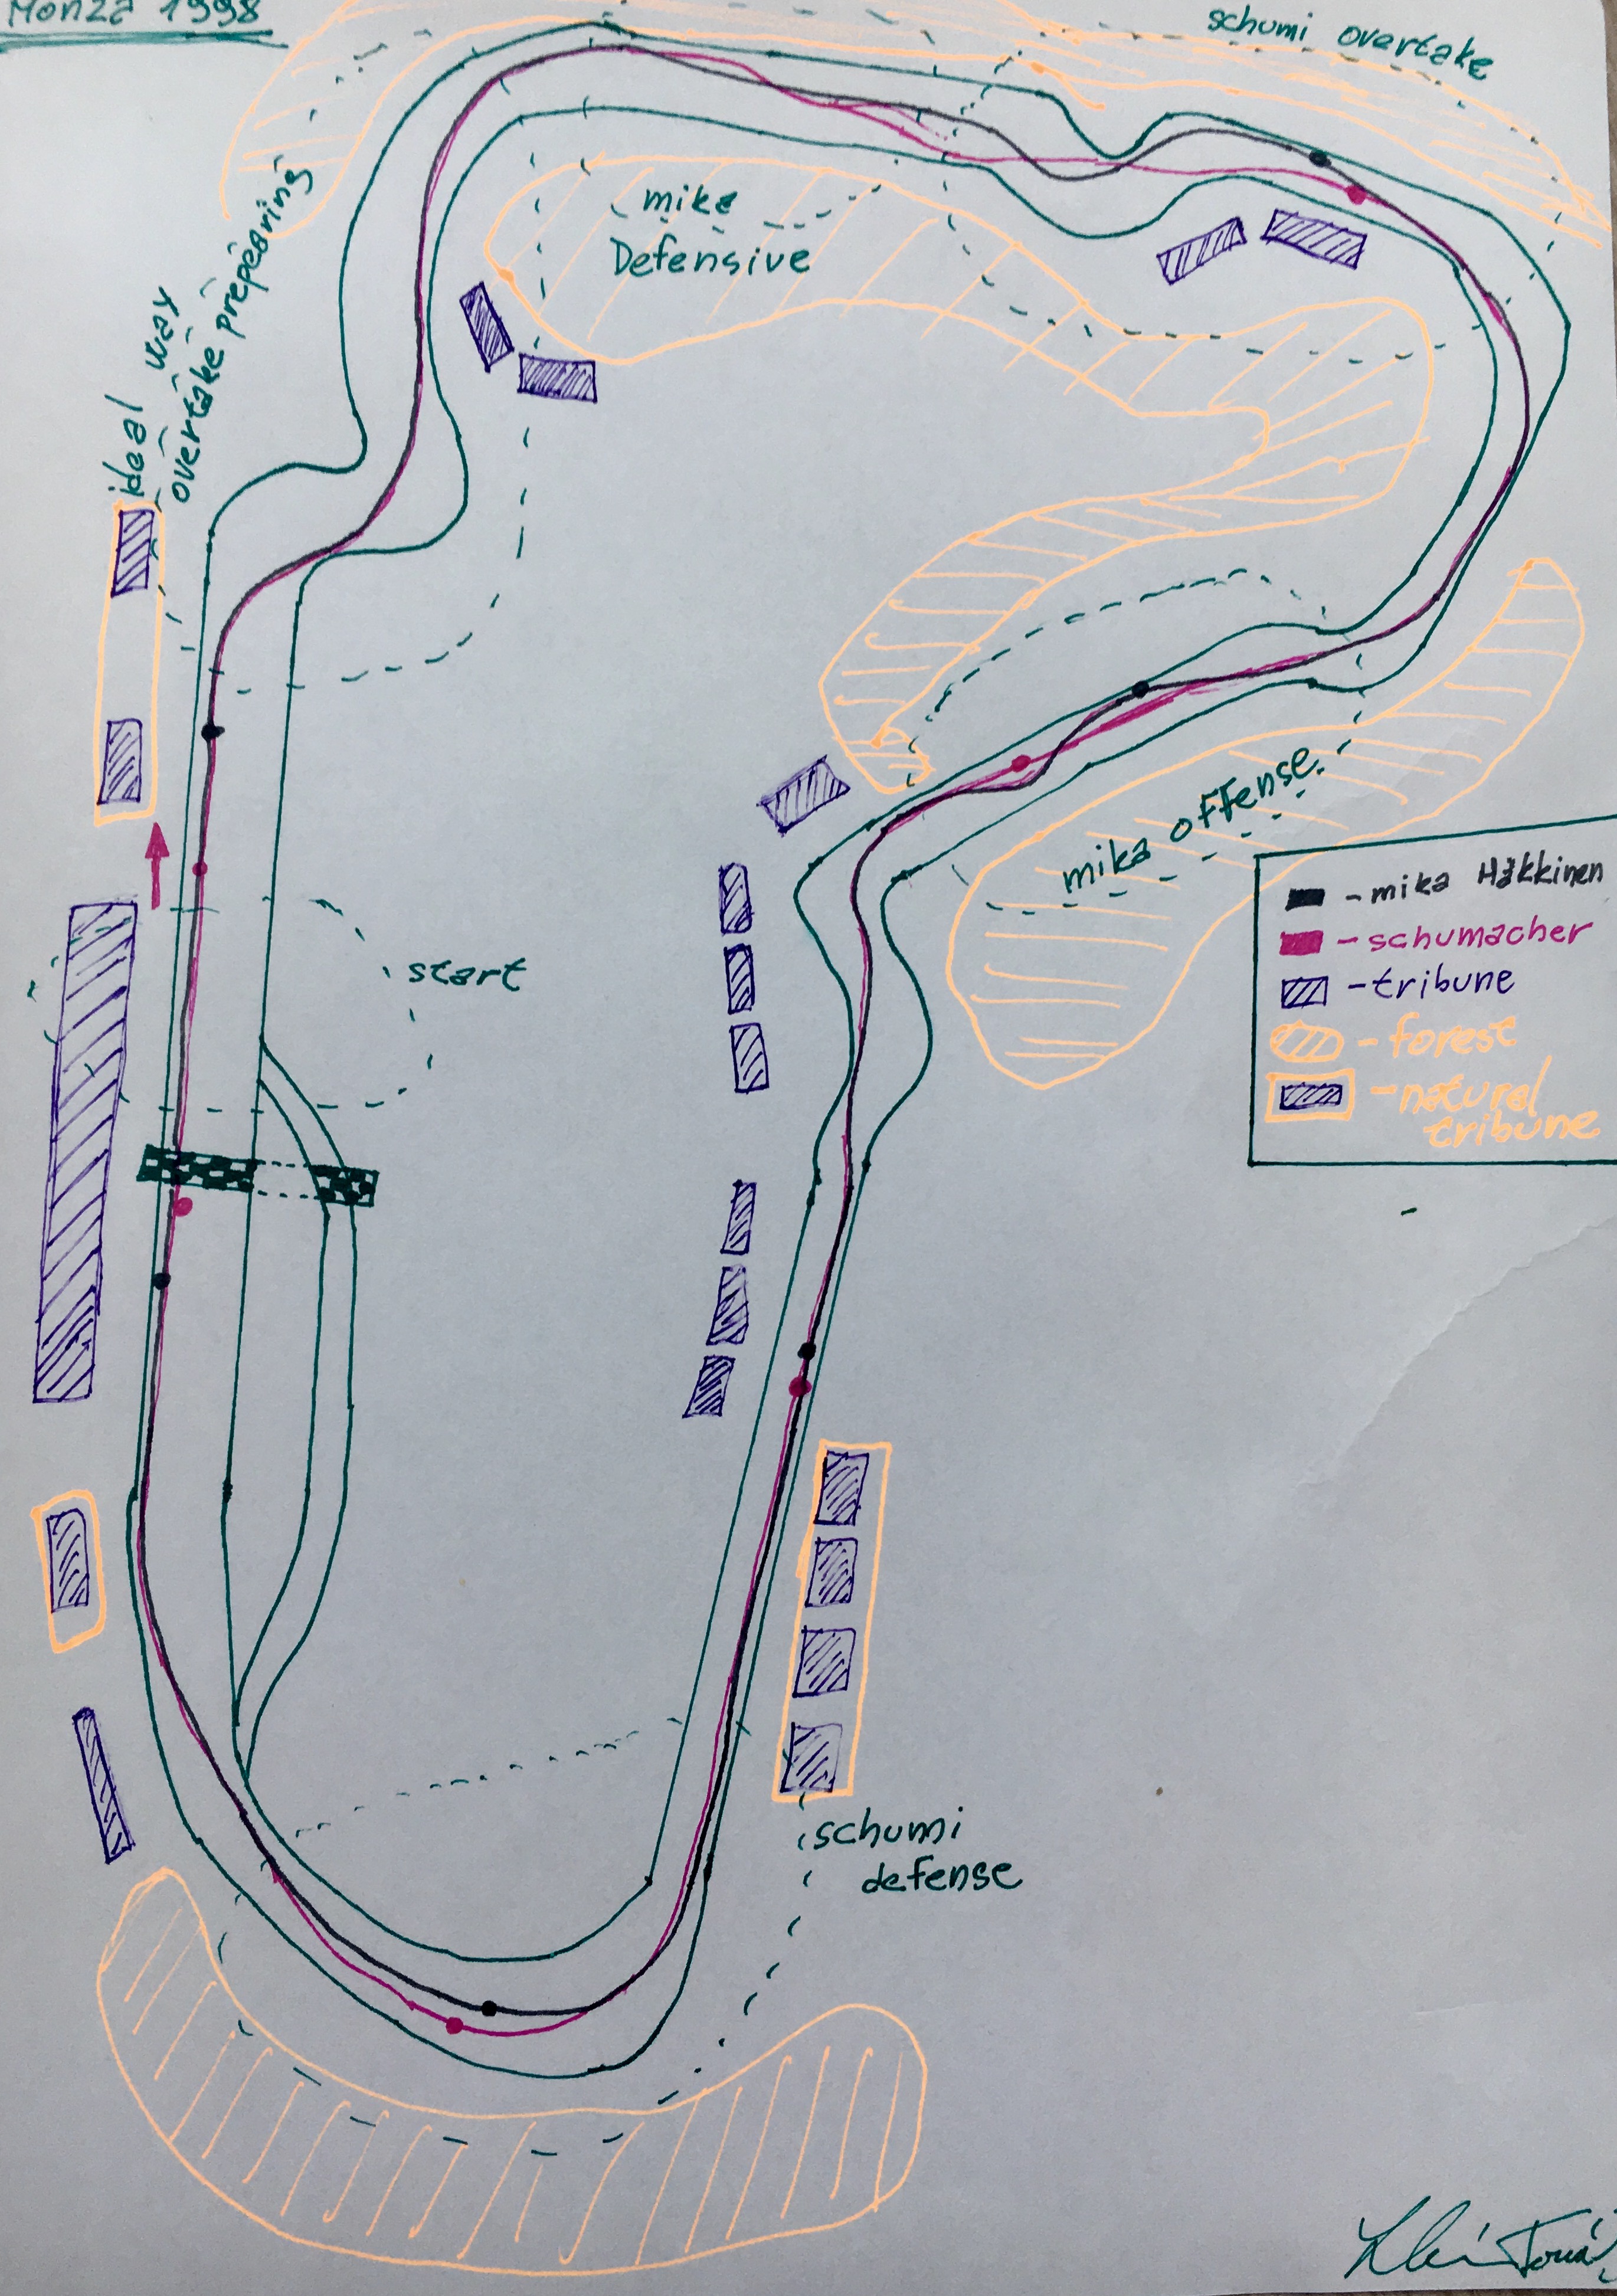 Monza 1998
schumi overtake
mike
Defensive
ideal way
overtake prepearing
mika offense.
- mika Häkkinen
- schumacher
- tribune
- forest
- natural
tribune
start
schumi
defense